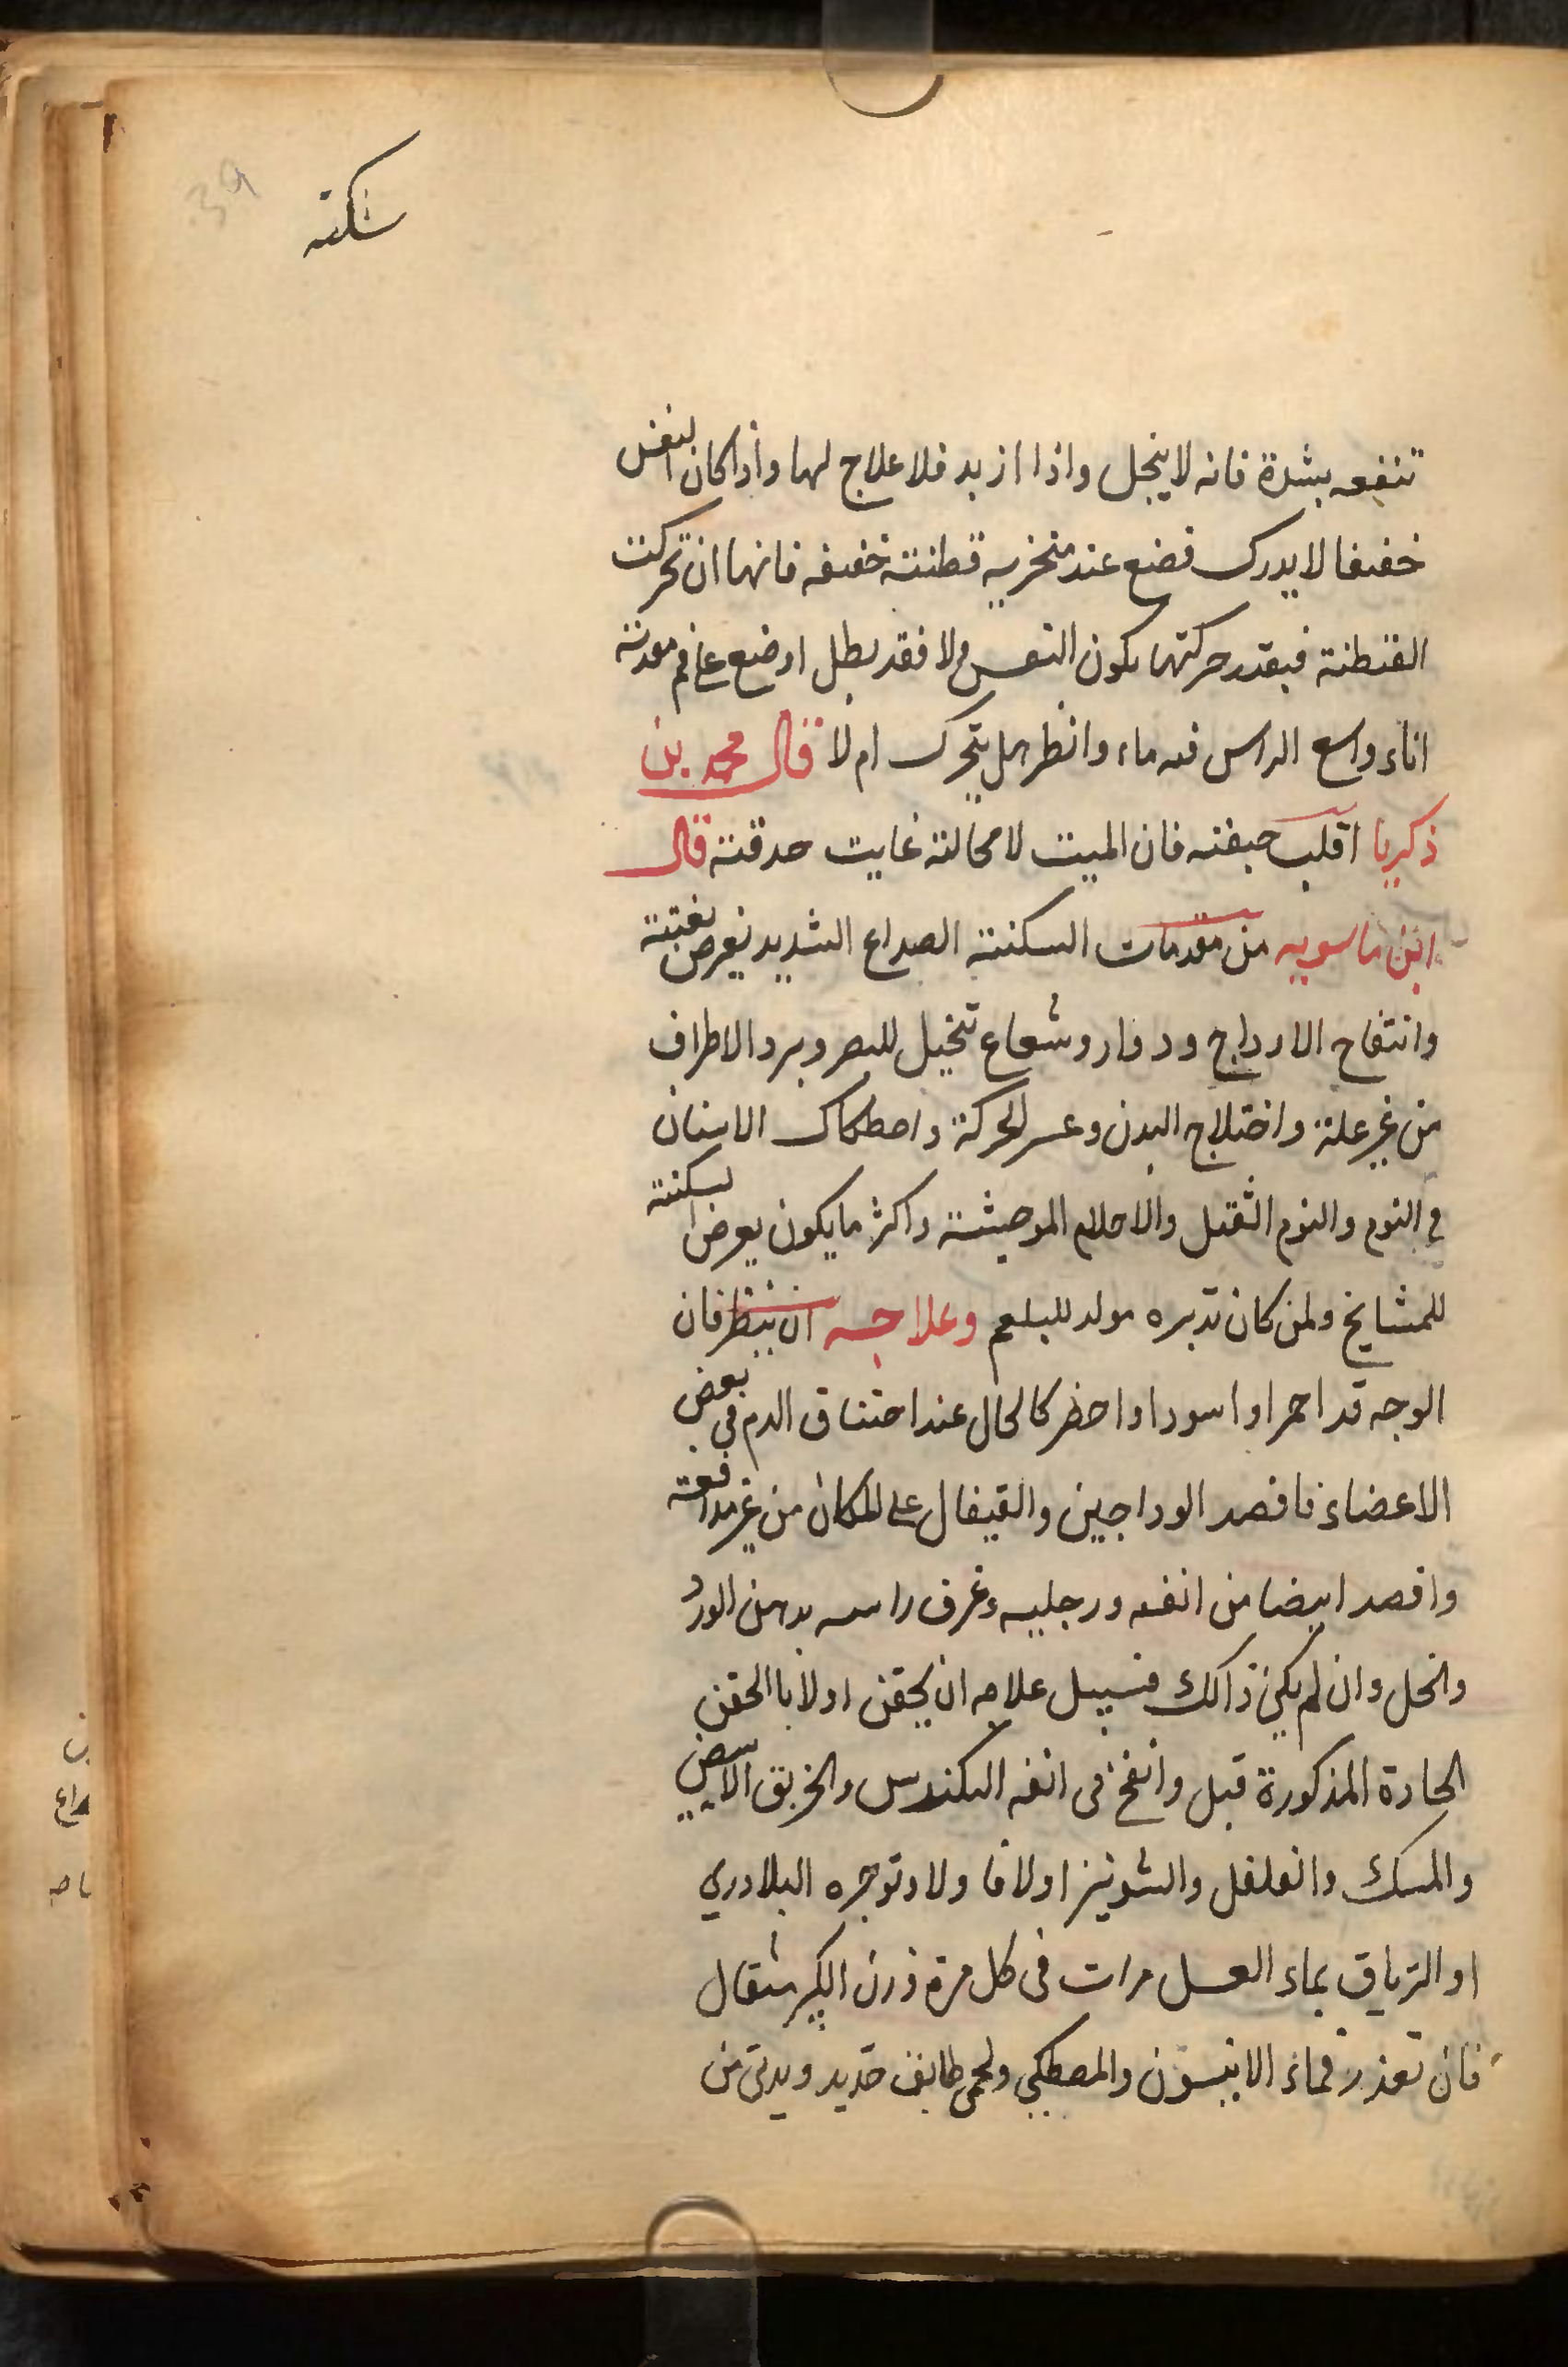 39
سكته
تنفعه بشدة فانه لا ينحل واذا ازبد فلا علاج لها واذا كان النفس
خفيفا لا يدرك فضع عند منخريه قطنته خفيفه فانها ان تحركت
القطنة فبقدر حركتها يكون النفس ولا فقد بطل او ضع على فم معدته
اناء واسع الراس فيه ماء وانظر هل يتحرك ام لا قال محمد بن
ذكريا اقلب جفنه فان الميت لا محالته غايت حدقته قال
ابن ماسويه من مقدمات السكتته الصداع الشديد يعرض بغتته
وانتفاخ الاوداج ودوار وشعاع تخيل للبصر وبرد الاطراف
من غير علة واختلاج البدن وعسر الحركة واصطكاك الاسنان
في النوم والنوم الثقيل والاحلام الموحشته واكثر ما يكون يعرض السكتته
للمشايخ ولمن كان تدبره مولد للبلغم وعلاجه ان ينظر فان
الوجه قد احمر او اسود او اخضر كالحال عند اختناق الدم في بعض
الاعضاء فافصد الوداجين والقيفال على المكان من غير مدافعته
وافصد ايضا من انفه ورجليه وغرف راسه بدهن الورد
والخل وان لم يكن ذالك فسبيل علاجه ان يحقن اولا باالحقن
الحادة المذكورة قبل وانفخ فى انفه الكندس والخربق الابيض
والمسك والفلفل والشونيز اولا فا ولا وتوجره البلادري
او الترياق بماء العسل مرات فى كل مرة وزن مثقال
فان تعذر فماء الانيسون والمصطكي ولحمى طابق حديد ويدنى من